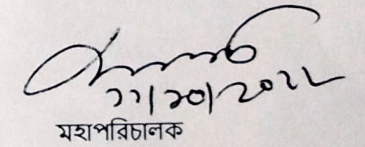 ১১/১০/২০২২
মহাপরিচালক